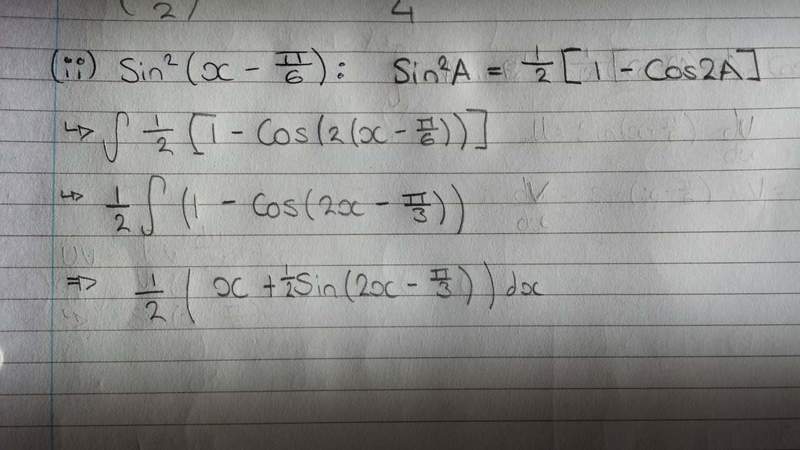 (2) 4
(ii) Sin²(x - π/6): Sin²A = 1/2 [1 - Cos2A]
↳ ∫ 1/2 [1 - Cos(2(x - π/6))]
↳ 1/2 ∫ (1 - Cos(2x - π/3))
⇒ 1/2 (x + 1/2 Sin(2x - π/3)) dx